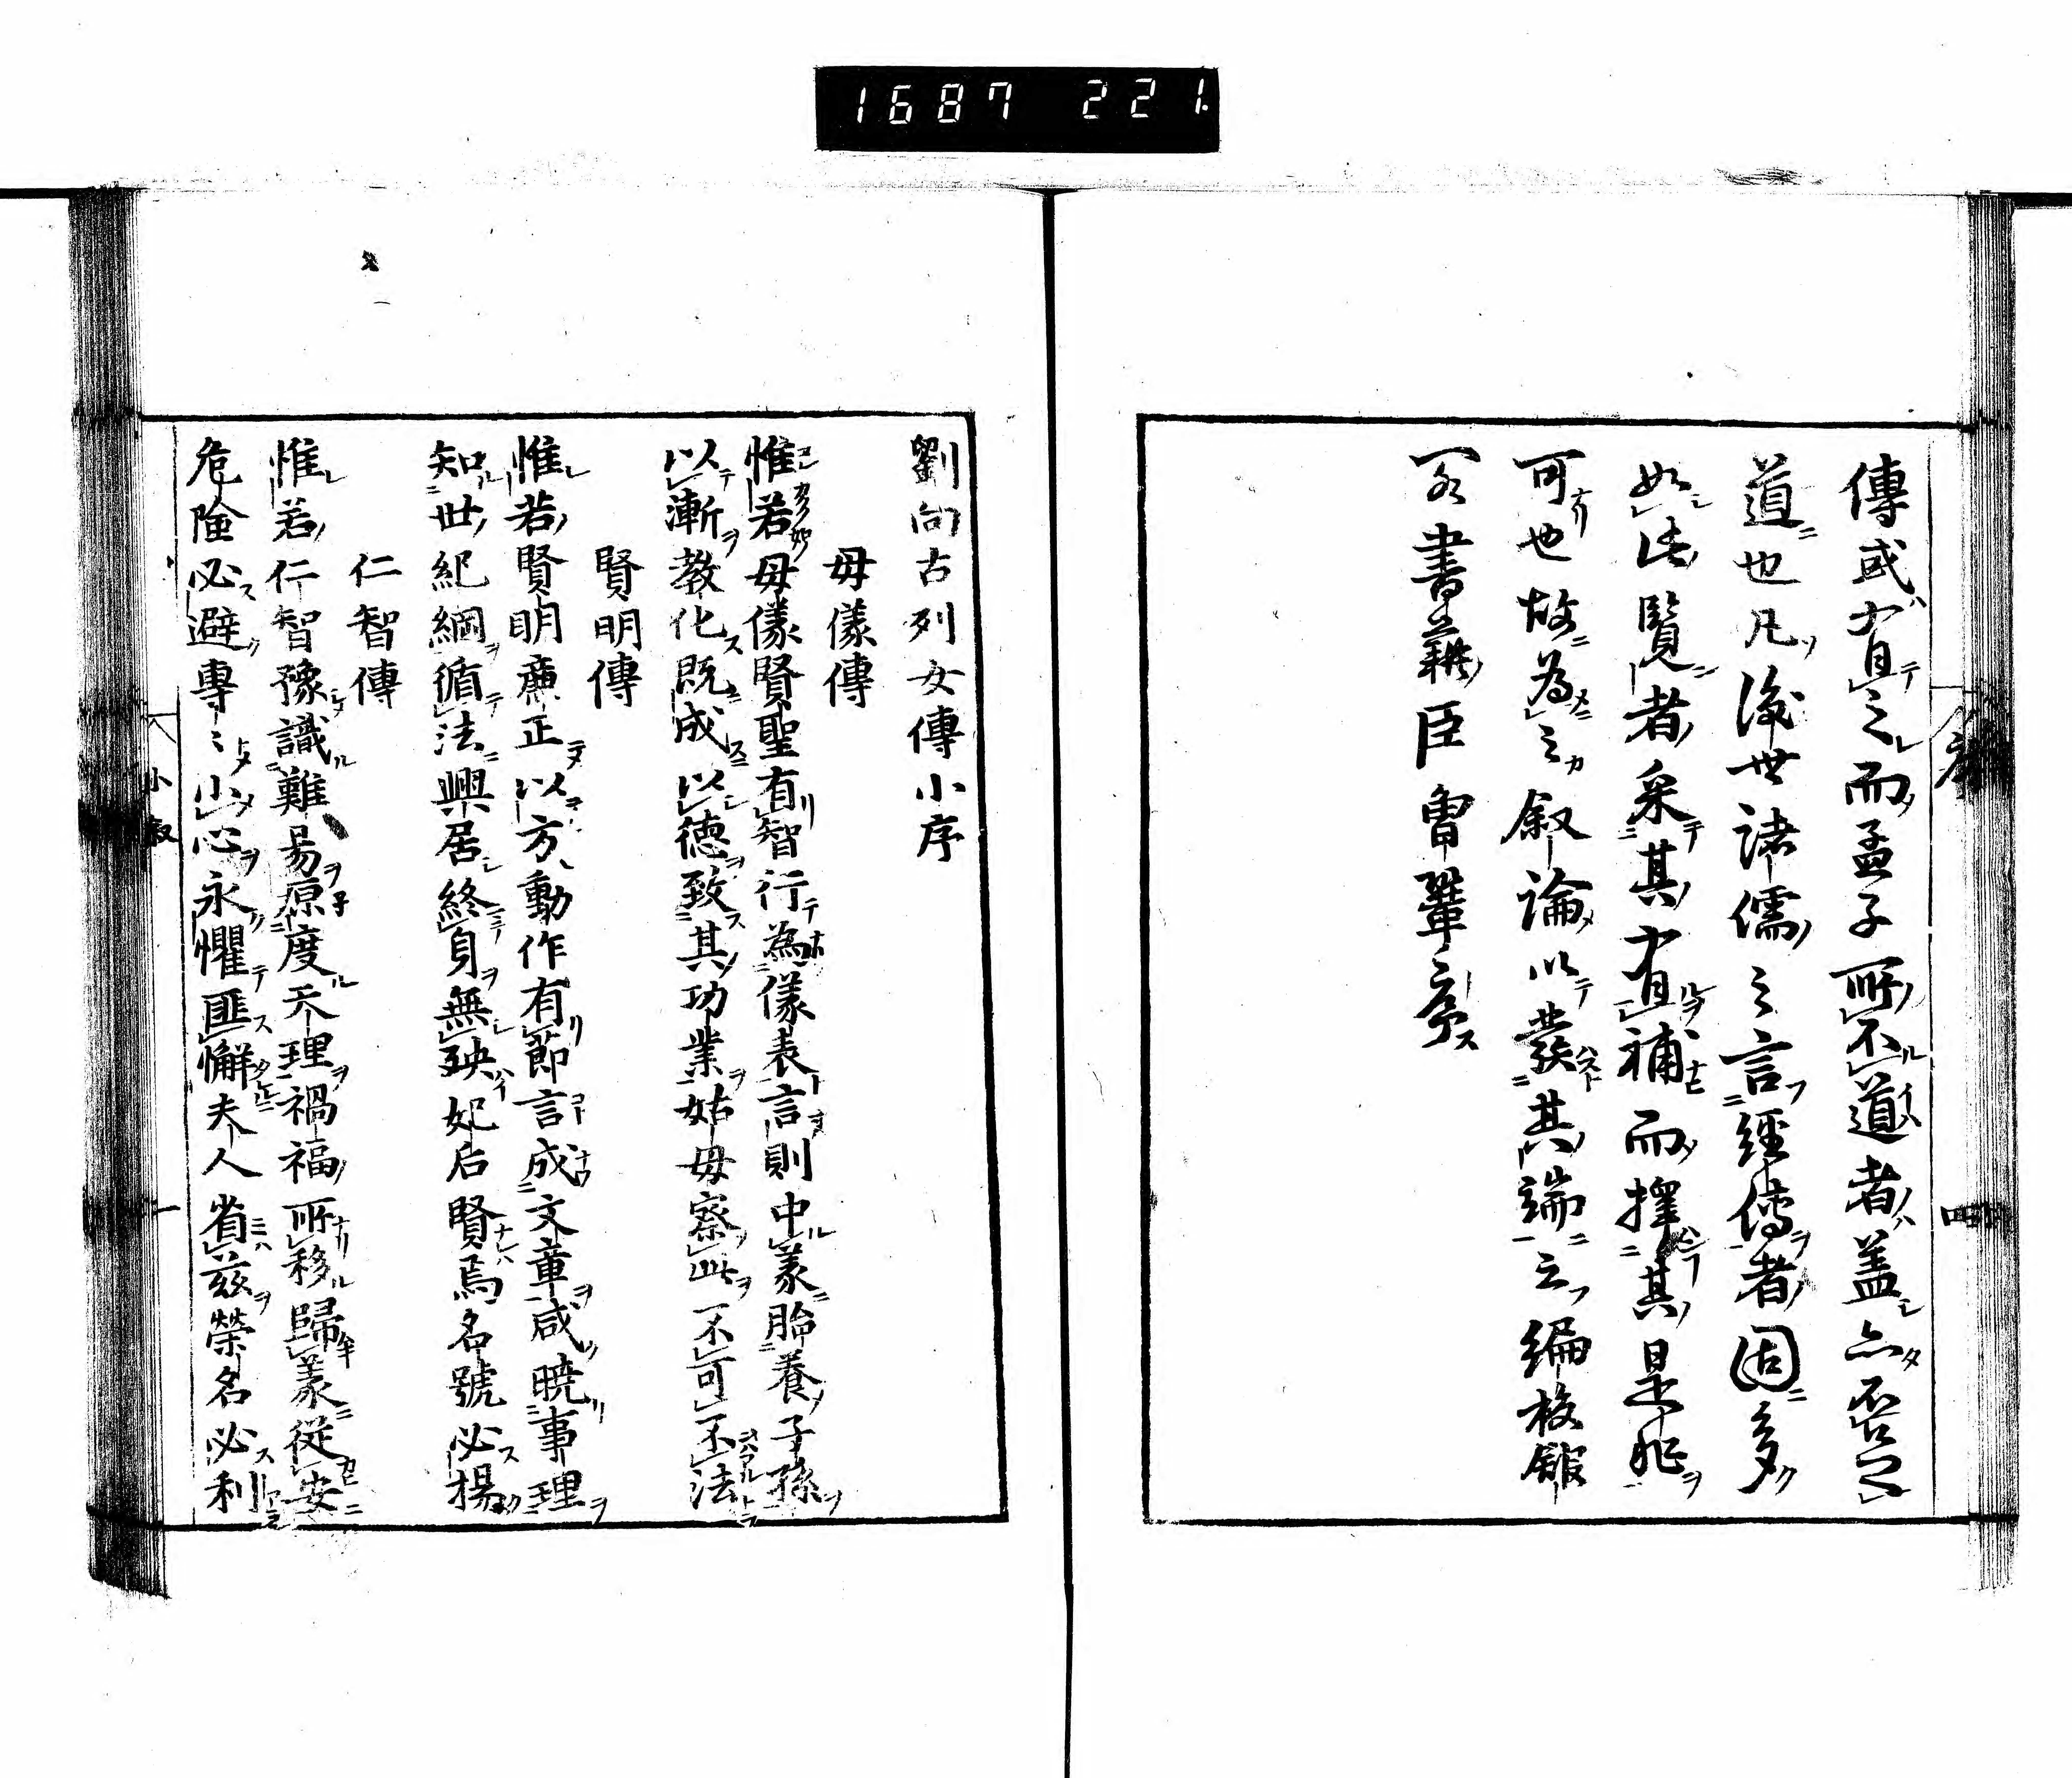 1687 221.
傳或有之而孟子所不道者盖亦不足
道也凡後世諸儒之言經傳者固多
如此覽者采其有補而擇其是非
可也故為之叙論以發其端云編校舘
閣書籍臣曾鞏序
序
四
劉向古列女傳小序
母儀傳
惟若母儀賢聖有智行為儀表言則中義胎養子孫
以漸教化既成以德致其功業姑母察此不可不法
賢明傳
惟若賢明廉正以方動作有節言成文章咸曉事理
知世紀綱循法興居終身無殃妃后賢焉名號必揚
仁智傳
惟若仁智豫識難易原度天理禍福所移歸義從安
危險必避專〻小心永懼匪懈夫人省兹榮名必利
小敘
一